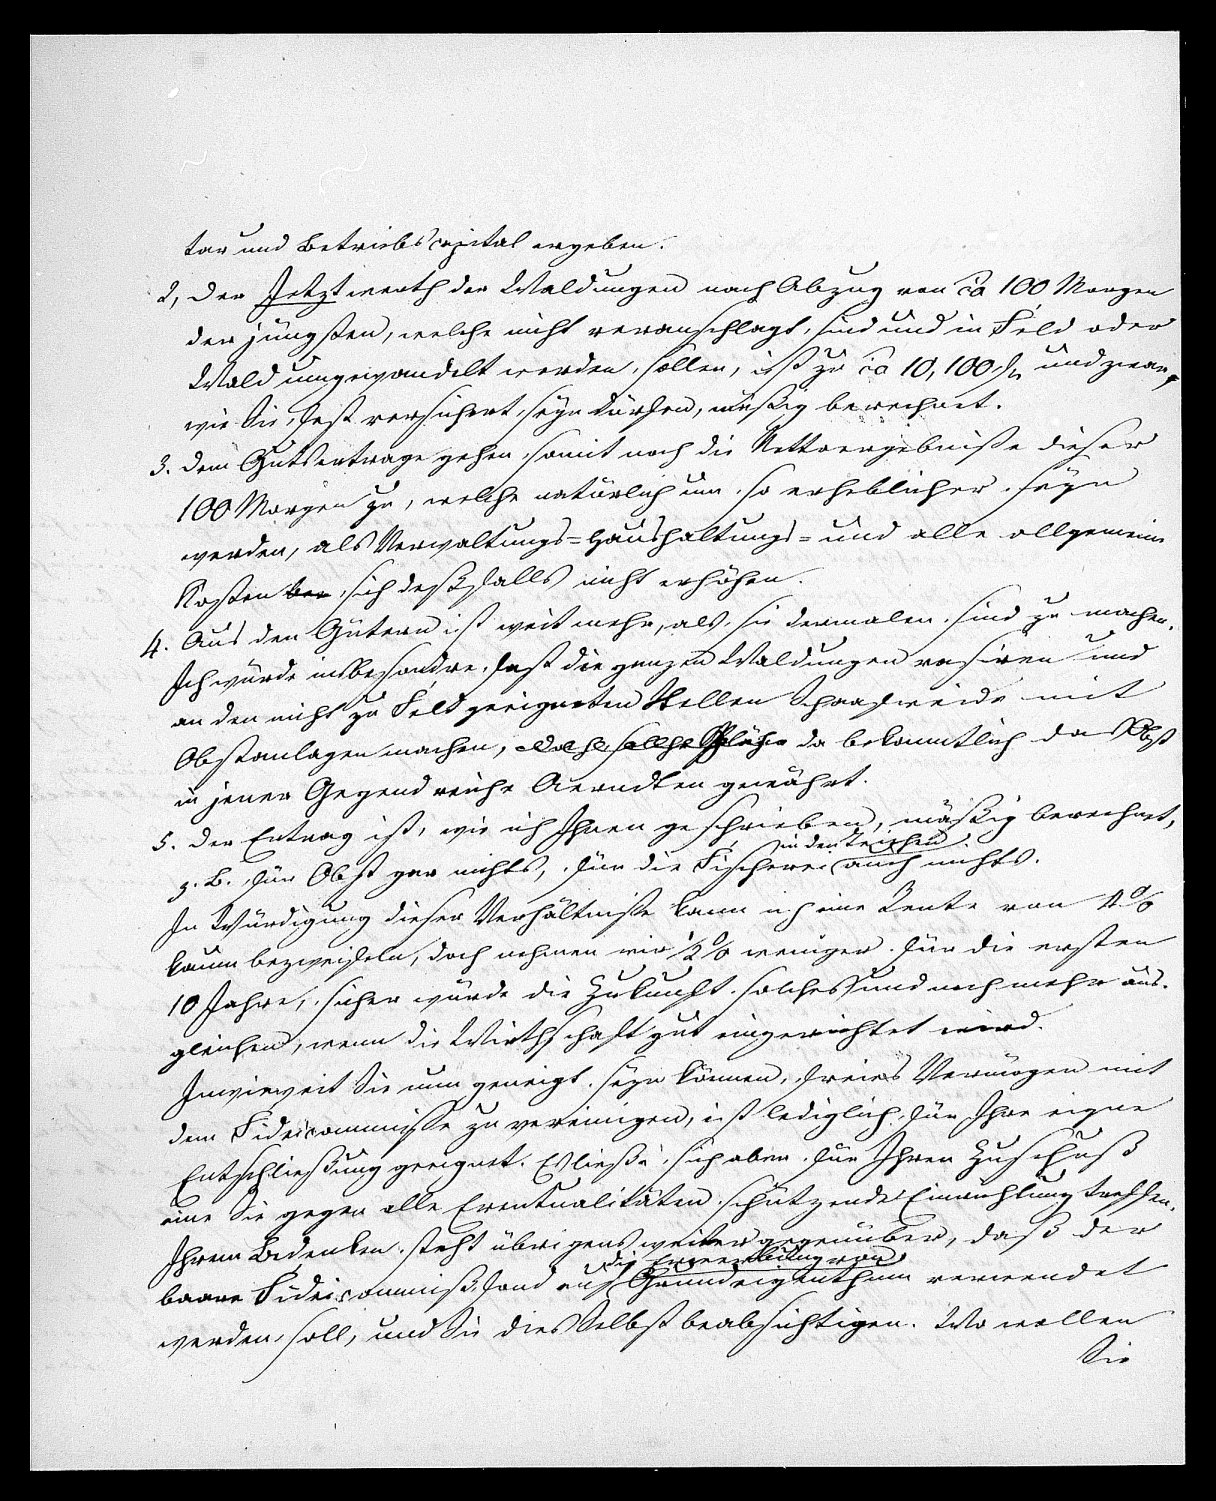 tar und Betriebscapital ergeben.
2, Der Jetztwerth der Waldungen nach Abzug von ca 100 Morgen
der jüngsten, welche nicht veranschlagt sind und in Feld oder
Wald umgewandelt werden sollen, ist zu ca 10,100 und zwar,
wie Sie fest versichert seyn dürfen, mäßig berechnet.
3. Dem Gutsertrage gehen somit noch die Nettoergebniße dieser
100 Morgen zu, welche natürlich um so erheblicher seyn
werden, als Verwaltungs- Haushaltungs- und alle allgemeine
Kosten sich deßfalls nicht erhöhen.
4. Aus den Gütern ist weit mehr, als sie dermalen sind zu machen.
Ich würde insbesondre fast die ganzen Waldungen rasiren und
an den nicht zu Feld geeigneten Stellen Schaafweide mit
Obstanlagen machen, da bekanntlich das Obst
in jener Gegend reiche Aerndten gewährt.
5. Der Ertrag ist, wie ich Ihnen geschrieben, mäßig berechnet,
z. B. für Obst gar nichts, für die Fischerei in den Teichen auch nichts.
In Würdigung dieser Verhältniße kann ich eine Rente von 4%
kaum bezweifeln, doch nehmen wir ½% weniger für die ersten
10 Jahre, sicher würde die Zukunft solches und noch mehr aus-
gleichen, wenn die Wirthschaft gut eingerichtet wird.
Inwieweit Sie nun geneigt seyn können, freies Vermögen mit
dem Fideicommisse zu vereinigen, ist lediglich für Ihre eigne
Entschließung geeignet. Es ließe sich aber für Ihren Zuschuß
eine Sie gegen alle Eventualitäten schützende Einrichtung treffen.
Ihrem Bedenken steht übrigens weiter gegenüber, daß der
baare Fideicommißfond auf die Erwerbung von Grundeigenthum verwendet
werden soll, und Sie dies Selbst beabsichtigen. Wo wollen
Sie